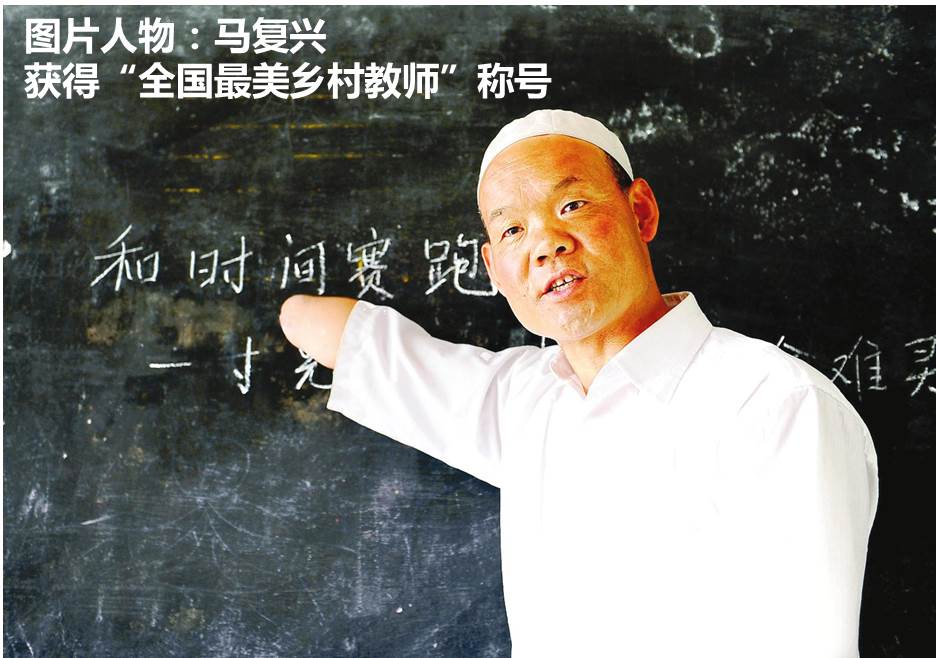 图片人物：马复兴
获得“全国最美乡村教师”称号
和时间赛跑
一寸光 金难买